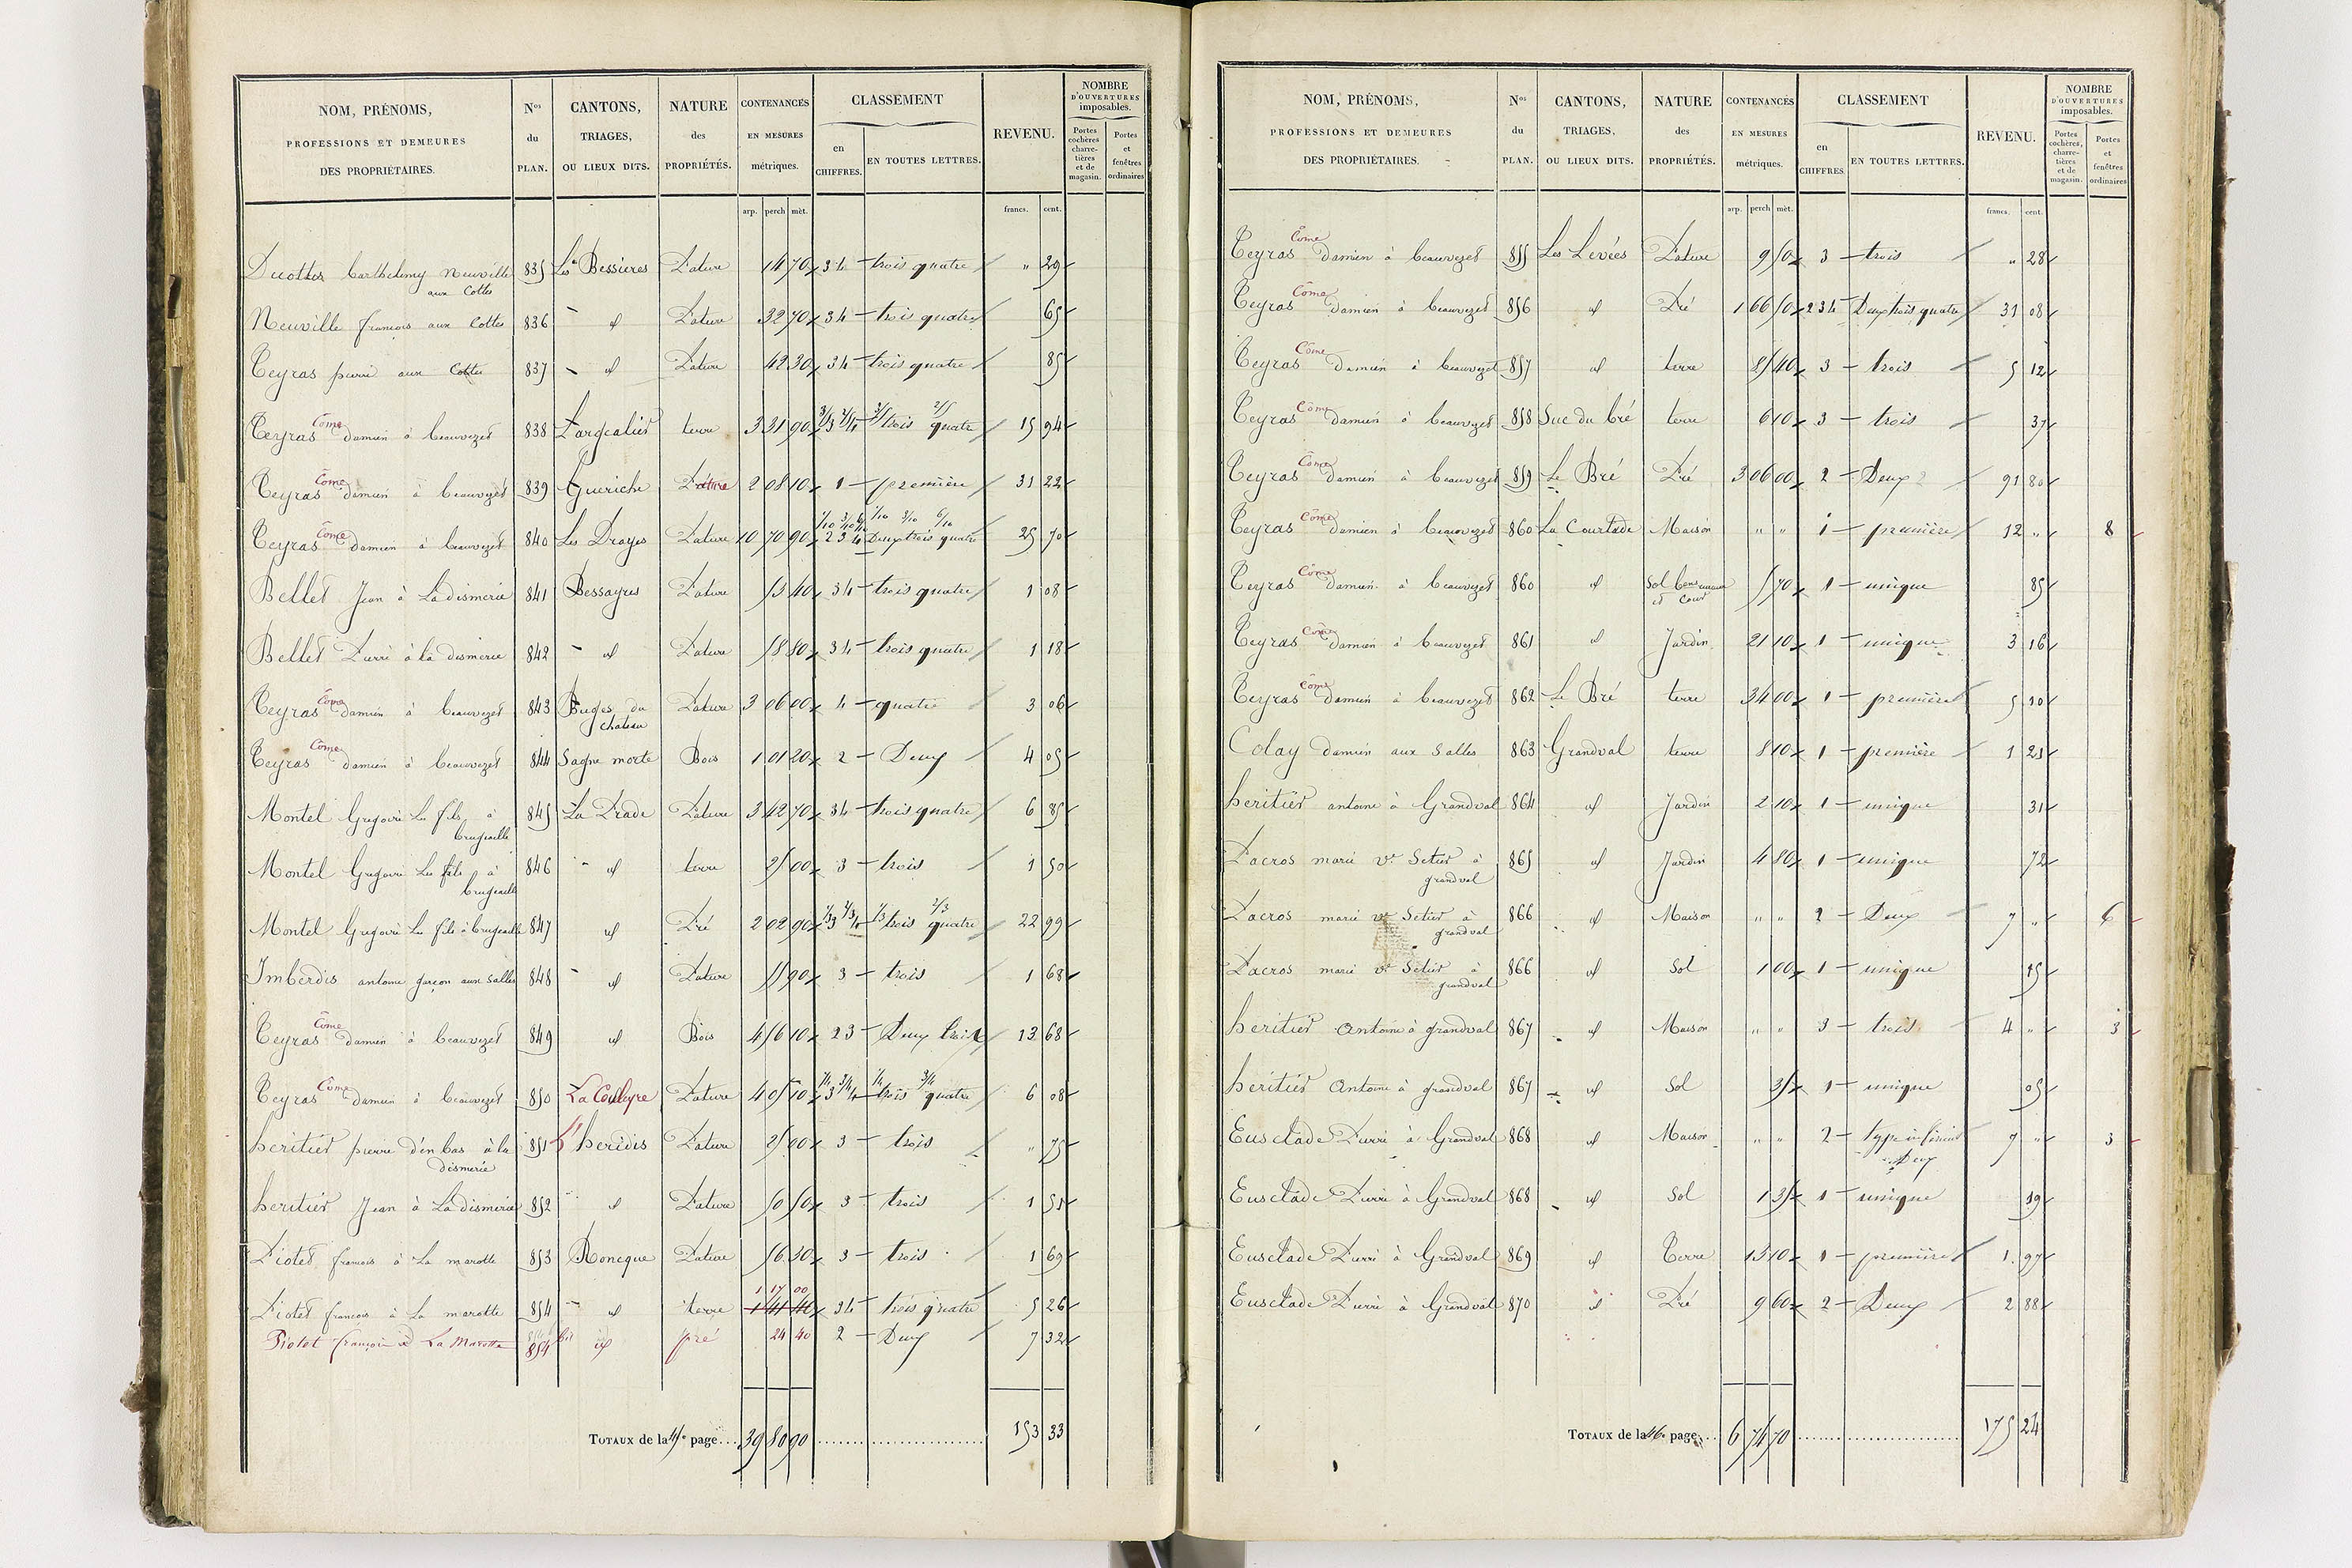 NOM, PRÉNOMS, PROFESSIONS ET DEMEURES DES PROPRIÉTAIRES.
Nos du PLAN.
CANTONS, TRIAGES, OU LIEUX DITS.
NATURE des PROPRIÉTÉS.
CONTENANCES EN MESURES métriques.
CLASSEMENT
en CHIFFRES.
EN TOUTES LETTRES.
REVENU.
NOMBRE D'OUVERTURES imposables.
Portes cochères charretières et de magasin.
Portes et fenêtres ordinaires
arp. perch mèt. francs. cent.
Barthelemy Neuville aux Cottes 835 Les Bessieres Pature 14 70 3 4 trois quatre " 29
Neuville françois aux Cottes 836 - id Pature 32 70 3 4 trois quatre 65
Teyras pierre aux Cottes 837 - id Pature 42 30 3 4 trois quatre 85
Teyras Côme damien à beauvezet 838 L'argealier terre 3 31 90 3/5 3 2/5 4 3/5 trois 2/5 quatre 15 94
Teyras Côme damien à beauvezet 839 Gueriche Pature 2 08 10 1 première 31 22
Teyras Côme damien à beauvezet 840 Les Drayes Pature 10 70 90 1/10 3/10 6/10 2 3 4 1/10 3/10 6/10 Deux trois quatre 25 70
Bellet Jean à La dismerie 841 Bessayres Pature 53 40 3 4 trois quatre 1 08
Bellet Pierre à la dismerie 842 - id Pature 58 80 3 4 trois quatre 1 18
Teyras Côme damien à beauvezet 843 Buges du chateau Pature 3 06 00 4 quatre 3 06
Teyras Côme damien à beauvezet 844 Sagne morte Bois 1 01 20 2 Deux 4 05
Montel Gregoire Les fils à brugeaille 845 La Prade Pature 3 42 70 3 4 trois quatre 6 85
Montel Gregoire Les fils à brugeaille 846 - id terre 25 00 3 trois 1 50
Montel Gregoire Les fils à brugeaille 847 id Pré 2 02 90 1/3 3 2/3 4 1/3 trois 2/3 quatre 22 99
Imberdis antoine garçon aux Salles 848 - id Pature 55 90 3 trois 1 68
Teyras Côme damien à beauvezet 849 id Bois 4 56 10 2 3 Deux trois 13 68
Teyras Côme damien à beauvezet 850 La Couleyre Pature 4 05 10 1/4 3 3/4 4 1/4 trois 3/4 quatre 6 08
heritier pierre d'en bas à la dismerie 851 L'heridis Pature 25 00 3 trois " 75
heritier Jean à La dismerie 852 id Pature 50 50 3 trois 1 51
Piotet françois à La marotte 853 Roncque Pature 56 30 3 trois 1 69
1 17 00
Piotet françois à La marotte 854 - id terre 1 41 40 3 4 trois quatre 5 26
Piotet françois à La Marotte 854 bis id pré 24 40 2 Deux 7 32
TOTAUX de la 45e page... 39 80 90 153 33
NOM, PRÉNOMS, PROFESSIONS ET DEMEURES DES PROPRIÉTAIRES.
Nos du PLAN.
CANTONS, TRIAGES, OU LIEUX DITS.
NATURE des PROPRIÉTÉS.
CONTENANCES EN MESURES métriques.
CLASSEMENT
en CHIFFRES.
EN TOUTES LETTRES.
REVENU.
NOMBRE D'OUVERTURES imposables.
Portes cochères, charretières et de magasin.
Portes et fenêtres ordinaires
arp. perch mèt. francs. cent.
Teyras Côme damien à beauvezet 855 Les Levées Pature 9 50 3 trois " 28
Teyras Côme damien à beauvezet 856 id Pré 1 66 50 2 3 4 Deux trois quatre 31 08
Teyras Côme damien à beauvezet 857 id terre 85 40 3 trois 5 12
Teyras Côme damien à beauvezet 858 Suc du bré terre 6 10 3 trois 37
Teyras Côme damien à beauvezet 859 Le Bré Pré 3 06 00 2 Deux 91 80
Teyras Côme damien à beauvezet 860 La Courtade Maison " " 1 première 12 " 8
Teyras Côme damien à beauvezet 860 id Sol et cour 5 70 1 unique 85
Teyras Côme damien à beauvezet 861 id Jardin 21 10 1 unique 3 16
Teyras Côme damien à beauvezet 862 Le Bré terre 34 00 1 première 5 10
Colay damien aux Salles 863 Grandval terre 8 10 1 première 1 21
heritier antoine à Grandval 864 id Jardin 2 10 1 unique 31
Dacros marie ve Setier à grandval 865 id Jardin 4 80 1 unique 72
Dacros marie ve Setier à grandval 866 id Maison " " 2 Deux 7 " 6
Dacros marie ve Setier à grandval 866 id Sol 1 00 1 unique 15
heritier Antoine à grandval 867 id Maison " " 3 trois 4 " 3
heritier Antoine à grandval 867 id Sol 35 1 unique 05
Eusclade Pierre à Grandval 868 id Maison " " 2 Deux 7 " 3
Eusclade Pierre à Grandval 868 id Sol 1 35 1 unique 19
Eusclade Pierre à Grandval 869 id Terre 13 10 1 première 1 97
Eusclade Pierre à Grandval 870 id Pré 9 60 2 Deux 2 88
TOTAUX de la 46e page... 6 74 70 175 24